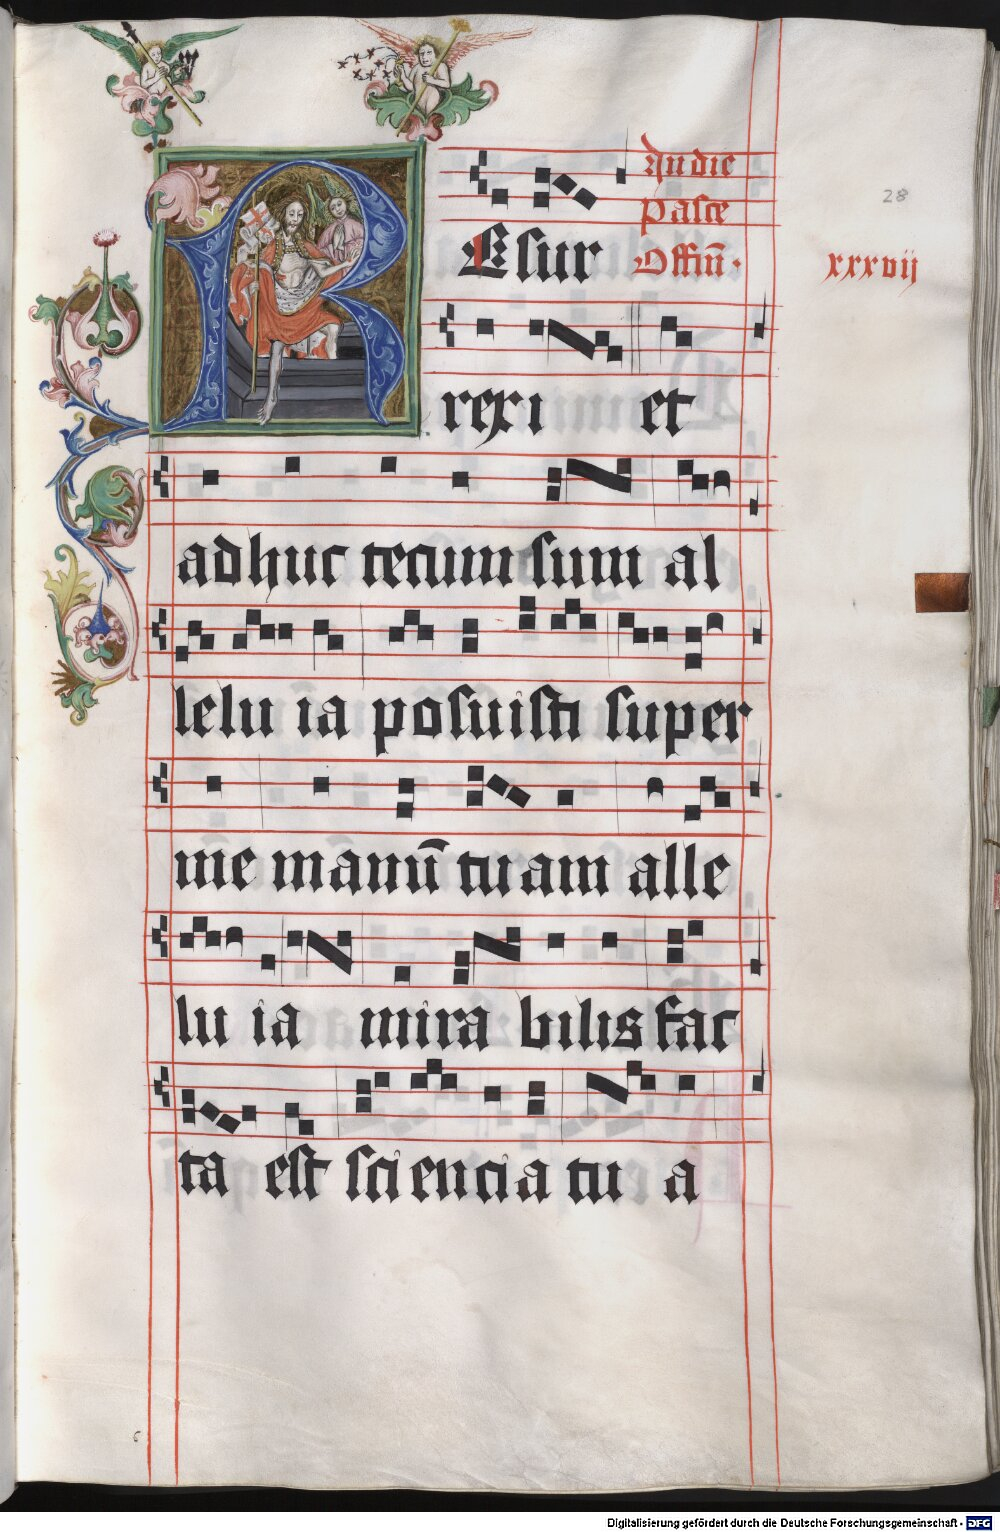 An die
pasce
Offin̄.
28
xxxvij
REsur
rexi et
adhuc tecum sum al
lelu ia posuisti super
me manū tuam alle
lu ia mira bilis fac
ta est sciencia tu a
Digitalisierung gefördert durch die Deutsche Forschungsgemeinschaft - DFG